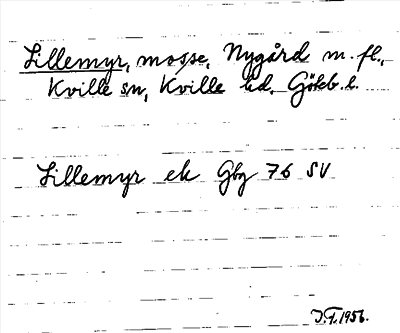 Lillemyr, mosse, Nygård m.fl.,
Kville sn, Kville hd, Göteb.l.
Lillemyr ek Gbg 76 SV
J.F.1956.